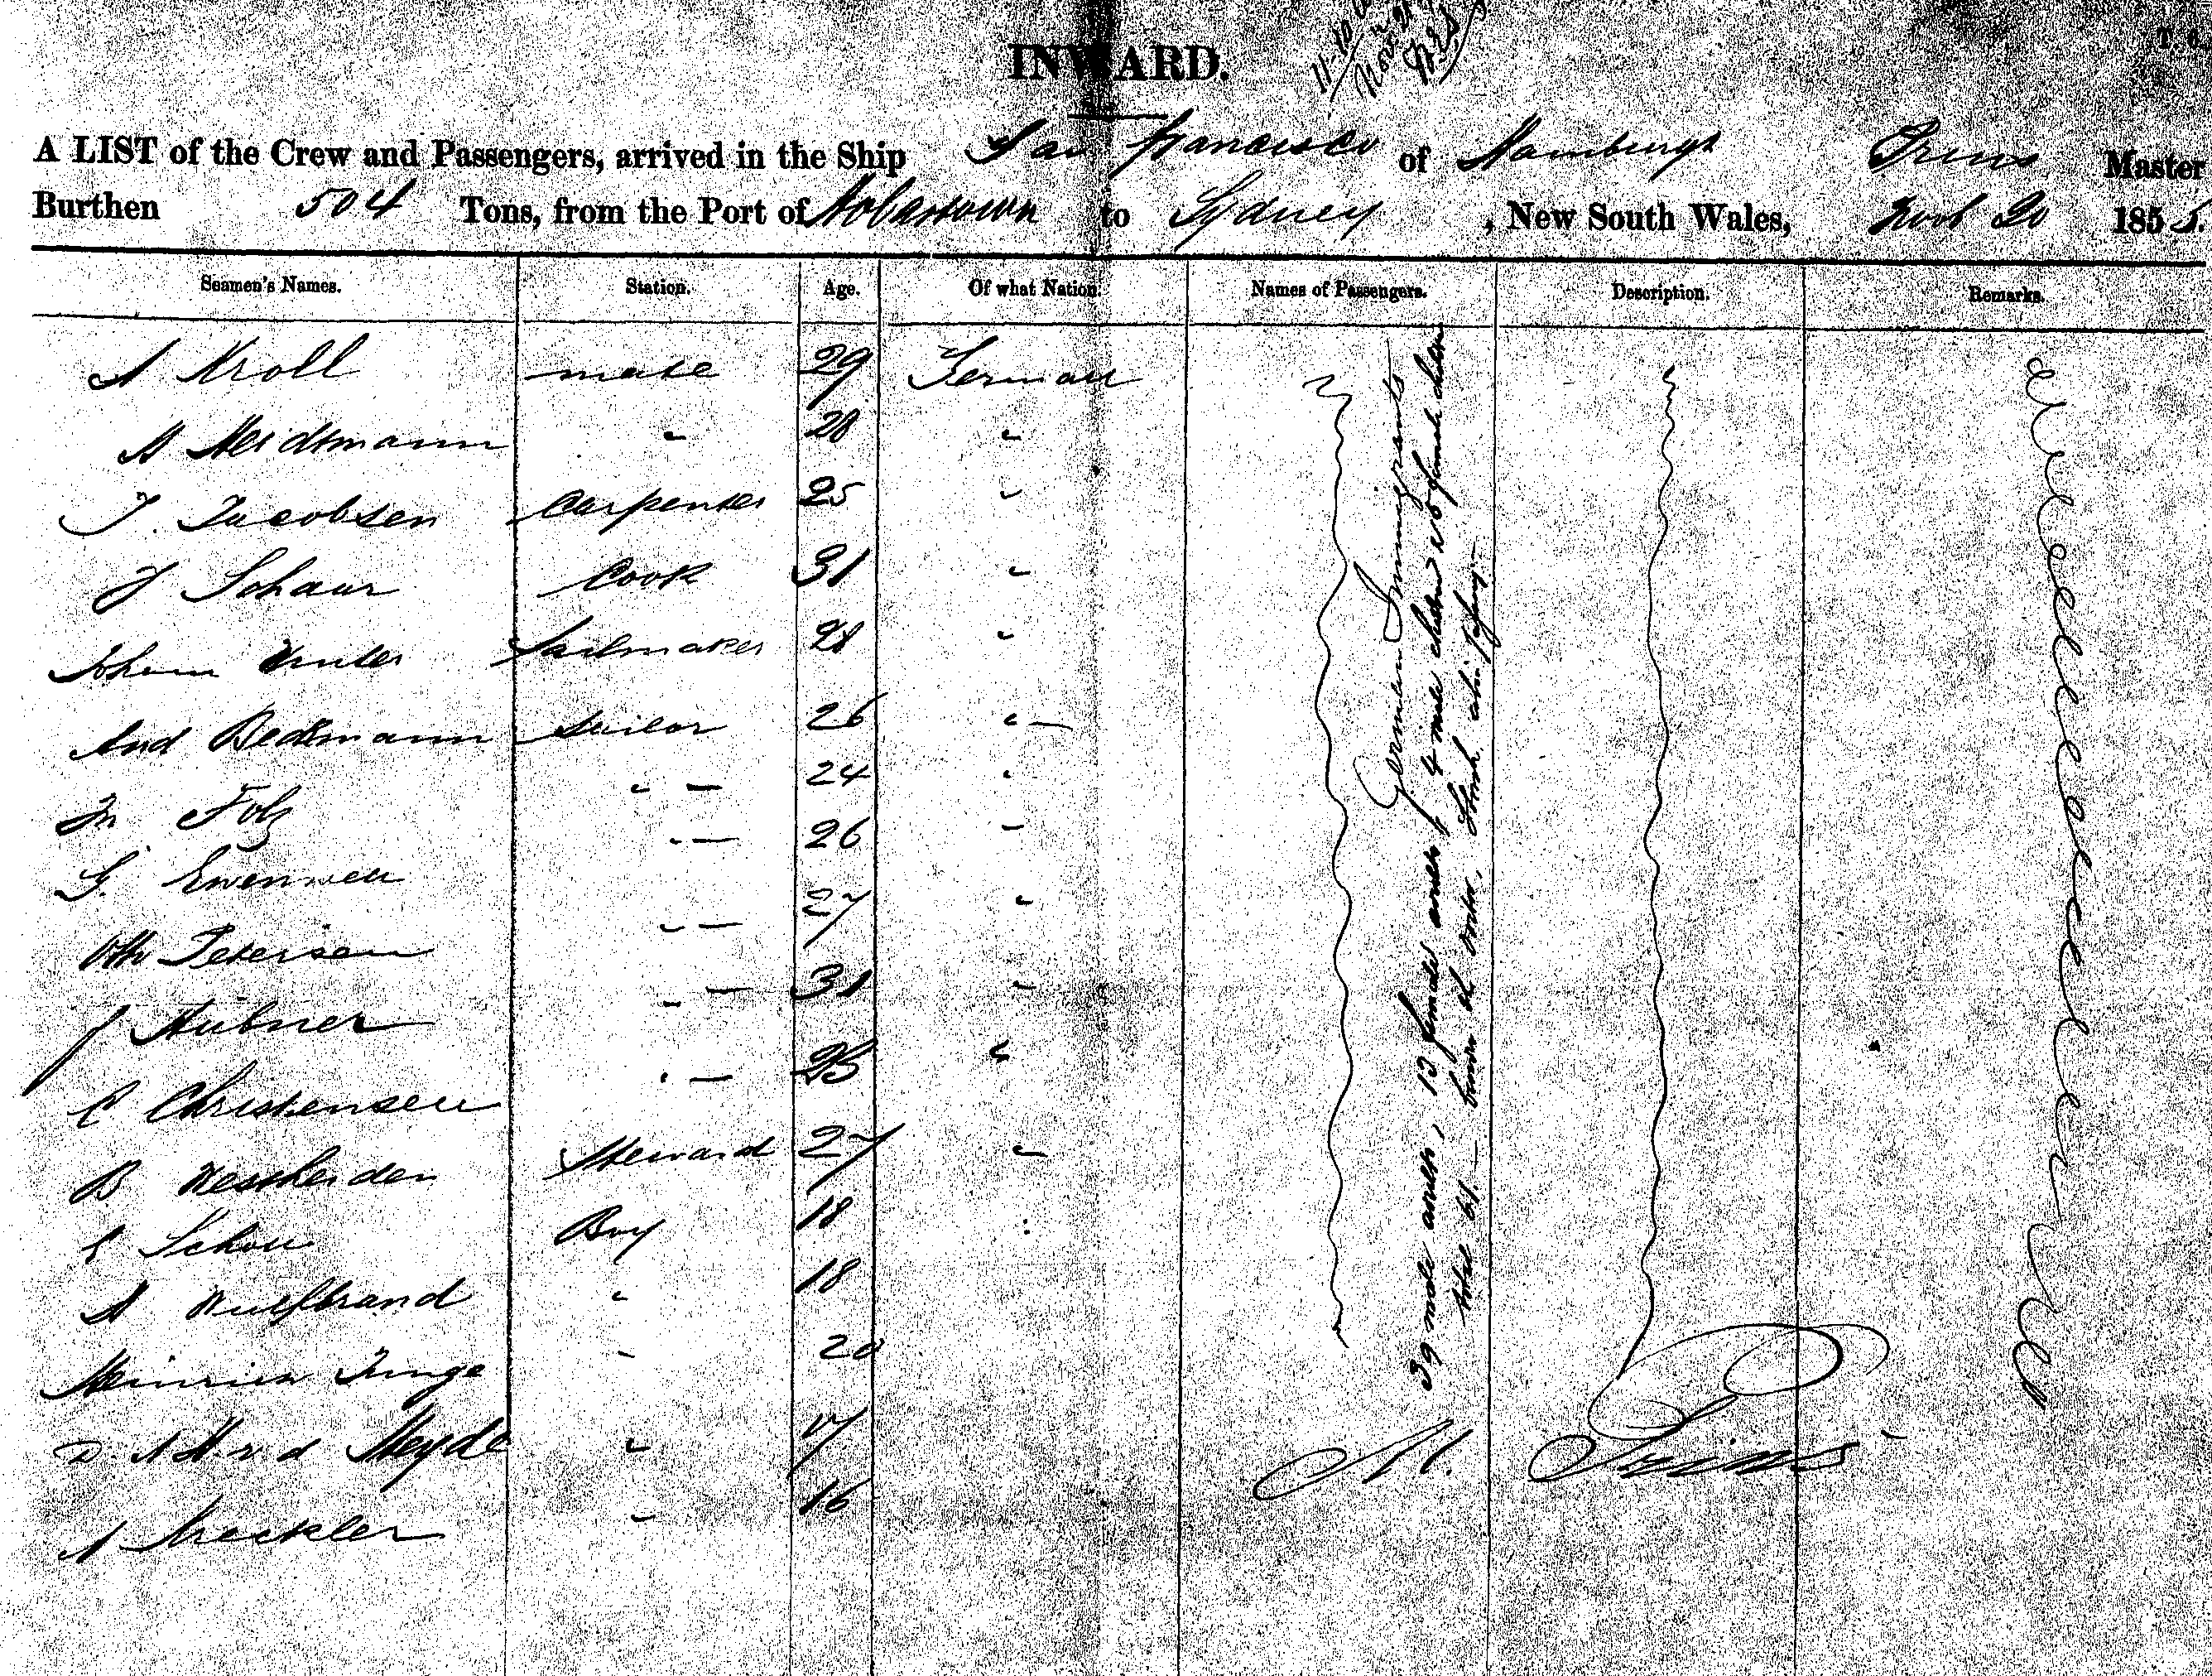 INWARD.
A LIST of the Crew and Passengers, arrived in the Ship San Francisco of Hamburgh Prins Master
Burthen 504 Tons, from the Port of Hobartown to Sydney, New South Wales, Novb 20 1855.
Seamen's Names. Station. Age. Of what Nation. Names of Passengers. Description. Remarks.
A Kroll mate 29 German
H Heidtmann " 28 "
J. Jacobsen Carpenter 25 "
J Schaur Cook 31 "
Johann Sailmaker 28 "
And Bedtmann Sailor 26 "
Fr Folz " 24 "
G. " 26 "
Otto Petersen " 27 "
J Hubner " 31 "
C Christensen " "
B Westheiden Steward 27 "
C Schou Boy 18 "
A 18
Heinrich Junge " 20
Heyde " 17
A Meckler " 16
German Immigrants
39 male adults, 13 female adults, 4 male children & 5 female children
total 61.
Prins